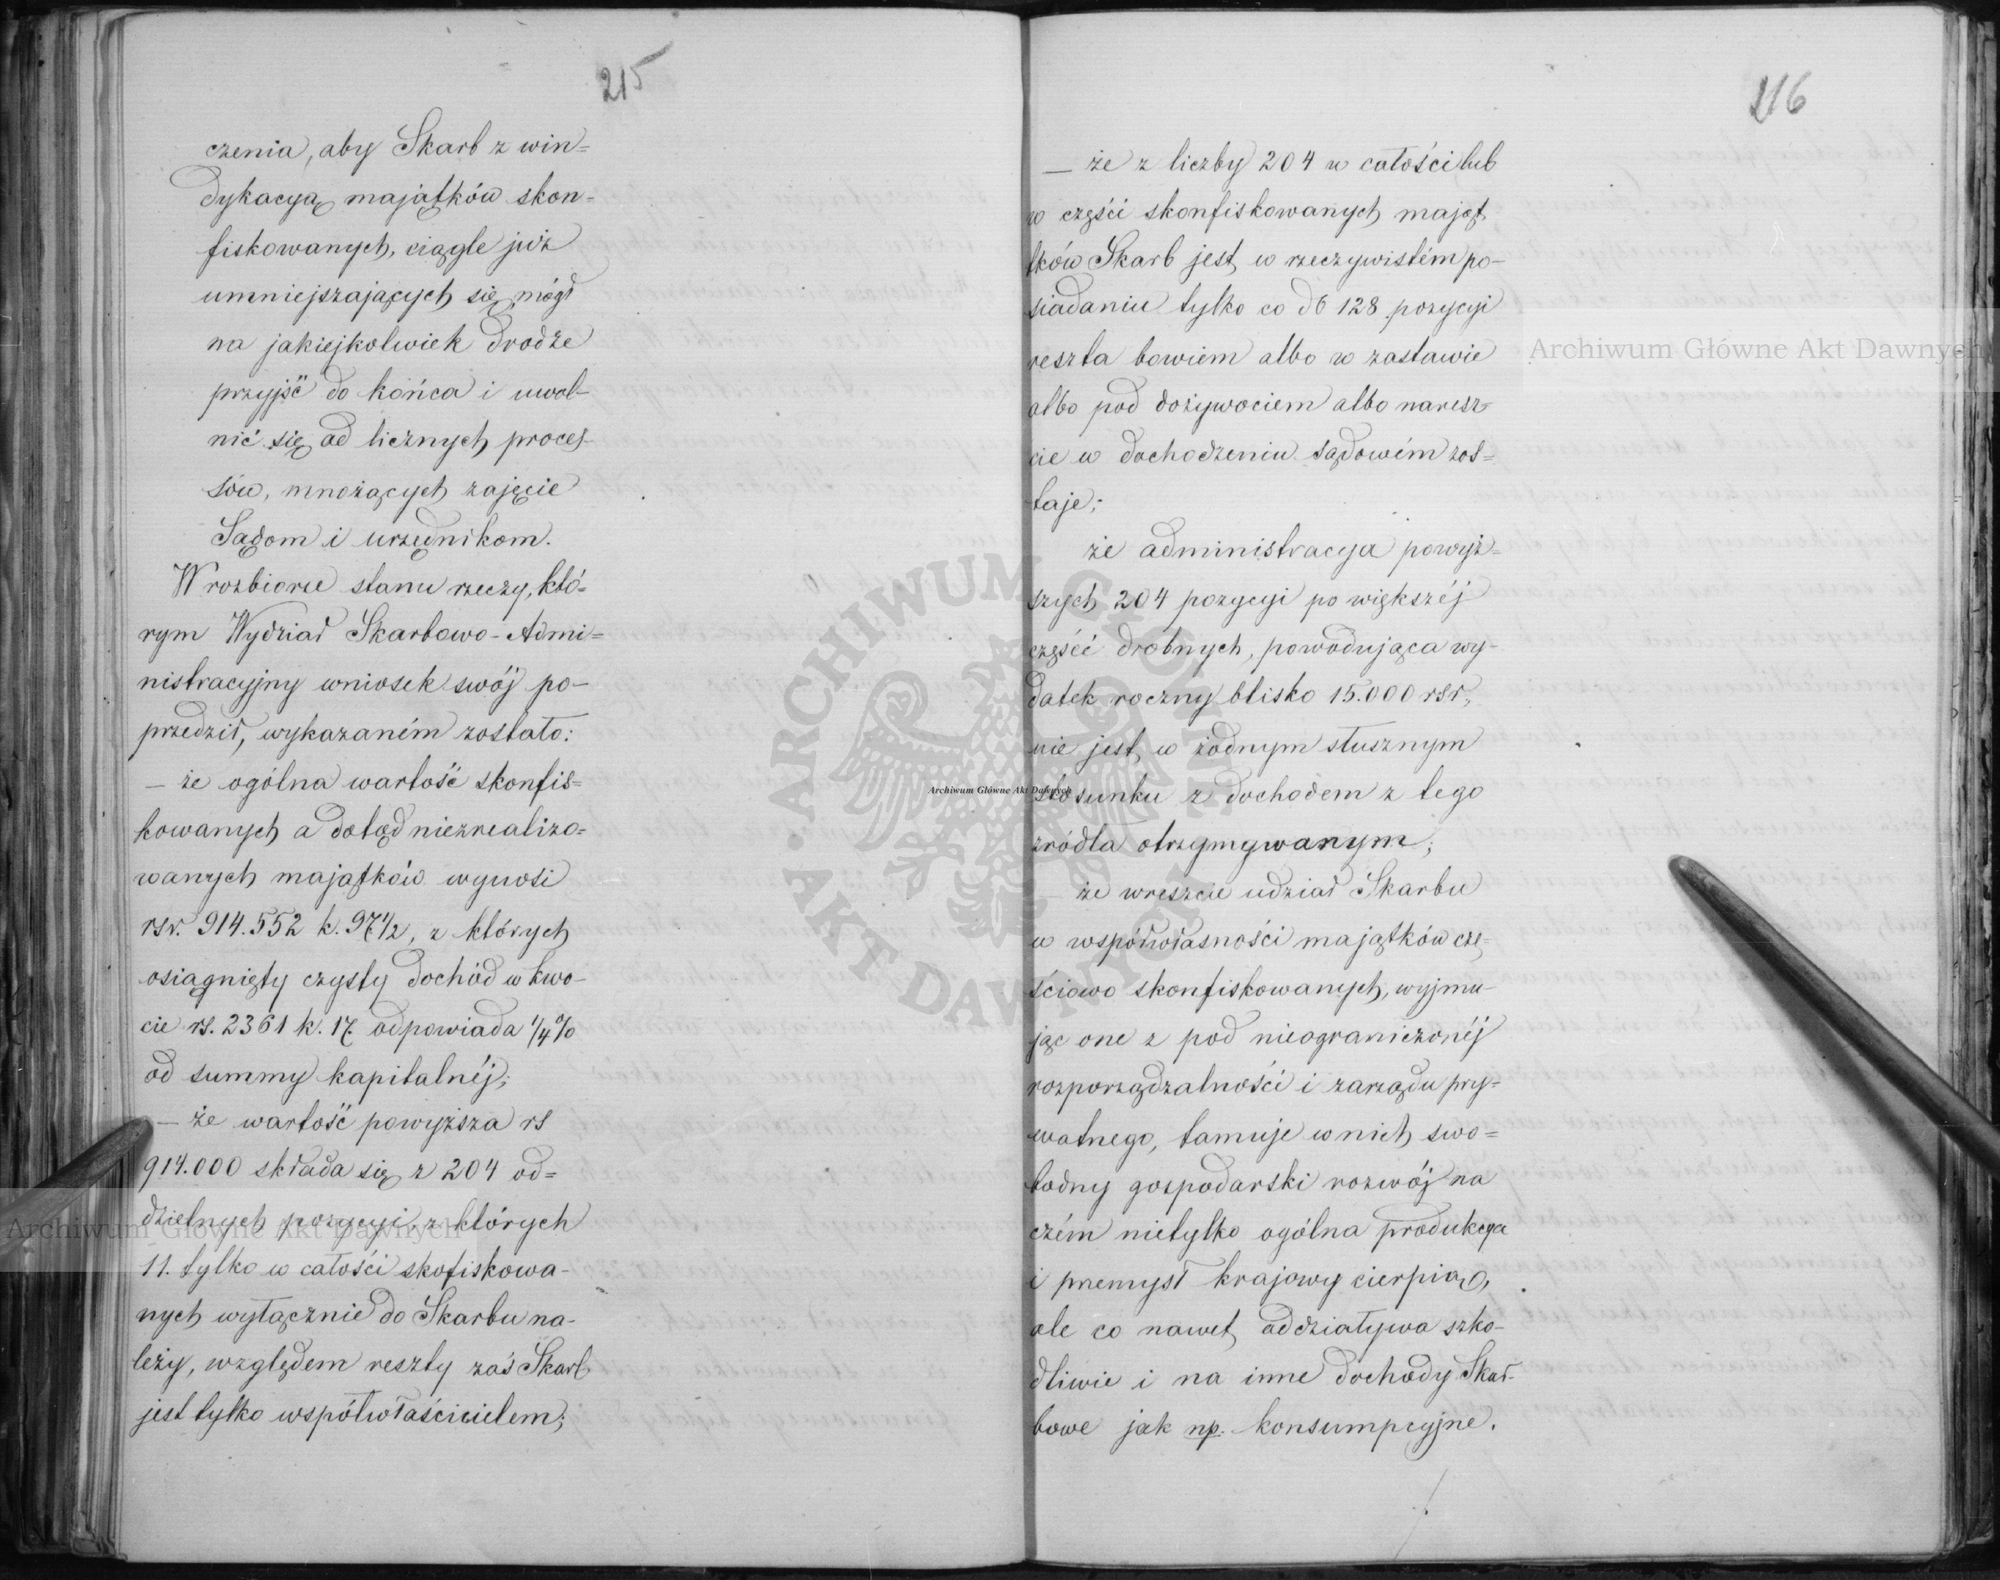 215
czenia, aby Skarb z win=
dykacyą majątków skon=
fiskowanych, ciągle już
umniejszających się mógł
na jakiejkolwiek drodze
przyjść do końca i uwol-
nić się od licznych proces-
sów, mnożących zajęcie
Sądom i urzędnikom.
W rozbiorze stanu rzeczy, któ=
rym Wydział Skarbowo-Admi=
nistracyjny wniosek swój po-
przedził, wykazaném zostało:
— że ogólna wartość skonfis=
kowanych a dotąd niezrealizo=
wanych majątków wynosi
rsr. 914.552 k. 97 1/2, z których
osiągnięty czysty dochód w kwo-
cie rs. 2361 k. 17. odpowiada 1/4%
od summy kapitalnéj;
— że wartość powyższa rs
914.000 składa się z 204 od=
dzielnych pozycyi, z których
11. tylko w całości skofiskowa-
nych wyłącznie do Skarbu na-
leży, względem reszty zaś Skarb
jest tylko współwłaścicielem;
216
— że z liczby 204 w całości lub
w części skonfiskowanych mająt
tków Skarb jest w rzeczywistém po-
siadaniu tylko co do 128 pozycyi
reszta bowiem albo w zastawie
albo pod dożywociem albo naresz-
cie w dochodzeniu sądowém zos=
taje;
że administracya powyż=
szych 204 pozycyi po większéj
część drobnych, powodująca wy-
datek roczny blisko 15.000 rsr,
nie jest w żadnym słusznym
stosunku z dochodem z tego
źródła otrzymywanym;
że wreszcie udział Skarbu
w współwłasności majątków czę-
ściowo skonfiskowanych, wyjmu-
jąc one z pod nieograniczonéj
rozporządzalności i zarządu pry=
watnego, tamuje w nich swo=
bodny gospodarski rozwój na
czém nietylko ogólna produkcya
i przemysł krajowy cierpią,
ale co nawet oddziaływa szko-
dliwie i na inne dochody Skar-
bowe jak np. konsumpcyjne.
Archiwum Główne Akt Dawnych
Archiwum Główne Akt Dawnych
Archiwum Główne Akt Dawnych
ARCHIWUM GŁÓWNE AKT DAWNYCH